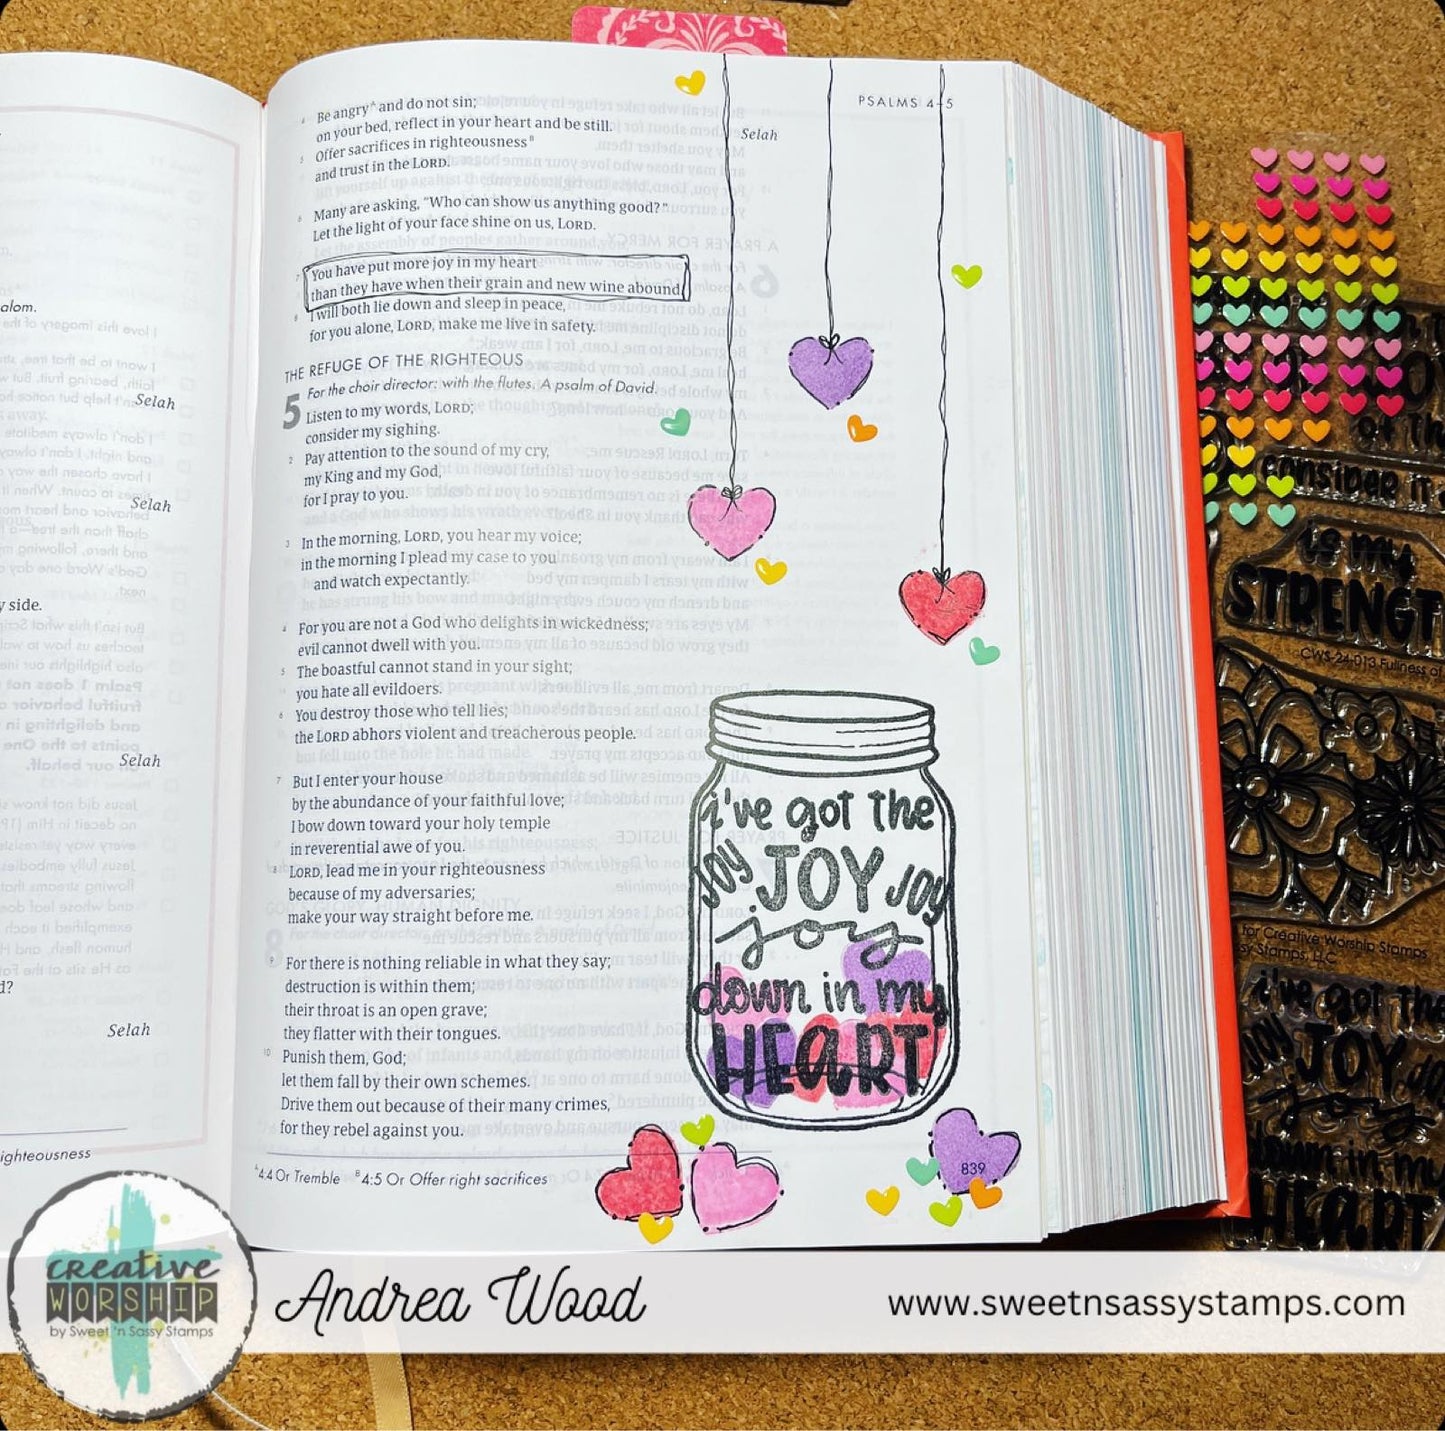 PSALMS 4–5
4 Be angryᴬ and do not sin;
on your bed, reflect in your heart and be still. Selah
5 Offer sacrifices in righteousnessᴮ
and trust in the LORD.
6 Many are asking, “Who can show us anything good?”
Let the light of your face shine on us, LORD.
7 You have put more joy in my heart
than they have when their grain and new wine abound.
8 I will both lie down and sleep in peace,
for you alone, LORD, make me live in safety.
THE REFUGE OF THE RIGHTEOUS
For the choir director: with the flutes. A psalm of David.
5 Listen to my words, LORD;
consider my sighing.
2 Pay attention to the sound of my cry,
my King and my God,
for I pray to you.
3 In the morning, LORD, you hear my voice;
in the morning I plead my case to you
and watch expectantly.
4 For you are not a God who delights in wickedness;
evil cannot dwell with you.
5 The boastful cannot stand in your sight;
you hate all evildoers.
6 You destroy those who tell lies;
the LORD abhors violent and treacherous people.
7 But I enter your house
by the abundance of your faithful love;
I bow down toward your holy temple
in reverential awe of you.
8 LORD, lead me in your righteousness
because of my adversaries;
make your way straight before me.
9 For there is nothing reliable in what they say;
destruction is within them;
their throat is an open grave;
they flatter with their tongues.
10 Punish them, God;
let them fall by their own schemes.
Drive them out because of their many crimes,
for they rebel against you.
ᴬ4:4 Or Tremble ᴮ4:5 Or Offer right sacrifices
839
i've got the
JOY JOY JOY
joy
down in my
HEART
alom.
Selah
Selah
y side.
Selah
d?
Selah
ighteousness
consider it
is my
STRENGT
CWS-24-013 Fullness of
for Creative Worship Stamps
sy Stamps, LLC
i've got the
JOY JOY
joy
down in my
HEART
creative
WORSHIP
by Sweet 'n Sassy Stamps
Andrea Wood
www.sweetnsassystamps.com